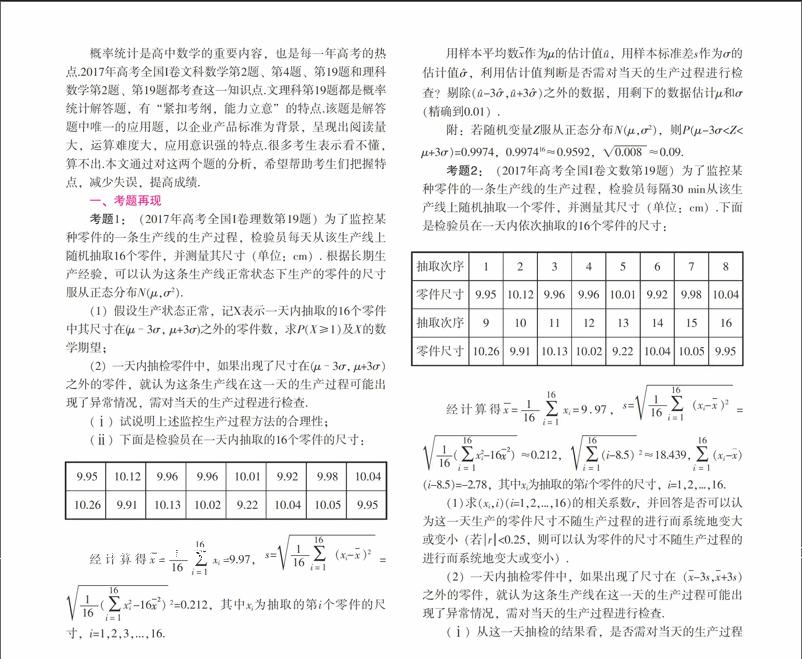 概率统计是高中数学的重要内容，也是每一年高考的热
点.2017年高考全国I卷文科数学第2题、第4题、第19题和理科
数学第2题、第19题都考查这一知识点.文理科第19题都是概率
统计解答题，有“紧扣考纲，能力立意”的特点.该题是解答
题中唯一的应用题，以企业产品标准为背景，呈现出阅读量
大，运算难度大，应用意识强的特点.很多考生表示看不懂，
算不出.本文通过对这两个题的分析，希望帮助考生们把握特
点，减少失误，提高成绩.
一、考题再现
考题1：（2017年高考全国I卷理数第19题）为了监控某
种零件的一条生产线的生产过程，检验员每天从该生产线上
随机抽取16个零件，并测量其尺寸（单位：cm）.根据长期生
产经验，可以认为这条生产线正常状态下生产的零件的尺寸
服从正态分布N(μ,σ²).
（1）假设生产状态正常，记X表示一天内抽取的16个零件
中其尺寸在(μ－3σ, μ+3σ)之外的零件数，求P(X≥1)及X的数
学期望；
（2）一天内抽检零件中，如果出现了尺寸在(μ－3σ, μ+3σ)
之外的零件，就认为这条生产线在这一天的生产过程可能出
现了异常情况，需对当天的生产过程进行检查.
（ⅰ）试说明上述监控生产过程方法的合理性；
（ⅱ）下面是检验员在一天内抽取的16个零件的尺寸：
9.95 10.12 9.96 9.96 10.01 9.92 9.98 10.04
10.26 9.91 10.13 10.02 9.22 10.04 10.05 9.95
经计算得x̄=1/16 ∑_{i=1}^{16} xᵢ=9.97，s=√(1/16 ∑_{i=1}^{16} (xᵢ-x̄)²) =
√(1/16 (∑_{i=1}^{16} xᵢ²-16x̄²)) ²=0.212，其中xᵢ为抽取的第i个零件的尺
寸，i=1,2,3,…,16.
用样本平均数x̄作为μ的估计值û，用样本标准差s作为σ的
估计值σ̂，利用估计值判断是否需对当天的生产过程进行检
查？剔除(û-3σ̂,û+3σ̂)之外的数据，用剩下的数据估计μ和σ
(精确到0.01）.
附：若随机变量Z服从正态分布N(μ,σ²)，则P(μ-3σ<Z<
μ+3σ)=0.9974，0.9974¹⁶≈0.9592，√0.008 ≈0.09.
考题2：（2017年高考全国I卷文数第19题）为了监控某
种零件的一条生产线的生产过程，检验员每隔30 min从该生
产线上随机抽取一个零件，并测量其尺寸（单位：cm）.下面
是检验员在一天内依次抽取的16个零件的尺寸：
抽取次序 1 2 3 4 5 6 7 8
零件尺寸 9.95 10.12 9.96 9.96 10.01 9.92 9.98 10.04
抽取次序 9 10 11 12 13 14 15 16
零件尺寸 10.26 9.91 10.13 10.02 9.22 10.04 10.05 9.95
经计算得x̄=1/16 ∑_{i=1}^{16} xᵢ=9.97，s=√(1/16 ∑_{i=1}^{16} (xᵢ-x̄)²) =
√(1/16 (∑_{i=1}^{16} xᵢ²-16x̄²)) ≈0.212，√(∑_{i=1}^{16} (i-8.5)) ²≈18.439，∑_{i=1}^{16} (xᵢ-x̄)
(i-8.5)=-2.78，其中xᵢ为抽取的第i个零件的尺寸，i=1,2,…,16.
(1)求(xᵢ,i)(i=1,2,…,16)的相关系数r，并回答是否可以认
为这一天生产的零件尺寸不随生产过程的进行而系统地变大
或变小（若|r|<0.25，则可以认为零件的尺寸不随生产过程的
进行而系统地变大或变小）.
（2）一天内抽检零件中，如果出现了尺寸在（x̄-3s,x̄+3s)
之外的零件，就认为这条生产线在这一天的生产过程可能出
现了异常情况，需对当天的生产过程进行检查.
（ⅰ）从这一天抽检的结果看，是否需对当天的生产过程